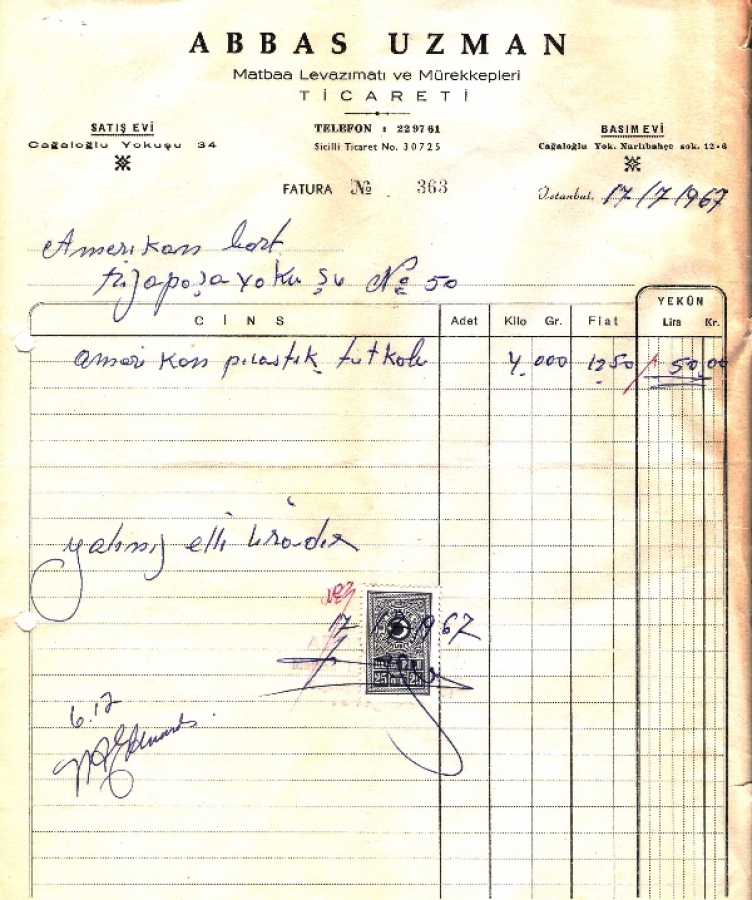 ABBAS UZMAN
Matbaa Levazımatı ve Mürekkepleri
TİCARETİ
SATIŞ EVİ
Cağaloğlu Yokuşu 34
TELEFON : 22 97 61
Sicilli Ticaret No. 30725
BASIM EVİ
Cağaloğlu Yok. Narlıbahçe sok. 12-6
FATURA № 363
İstanbul, 17/7/1967
Amerikan bort
rızapaşa yokuşu № 50
CİNS Adet Kilo Gr. Fiat YEKÛN Lira Kr.
amerikan pılastik tutkalı 4.000 12.50 50.00
yalınız elli liradır
17 1967
25 25
6.17